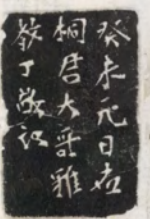 癸未元日者
桐居大哥雅
教丁敬記